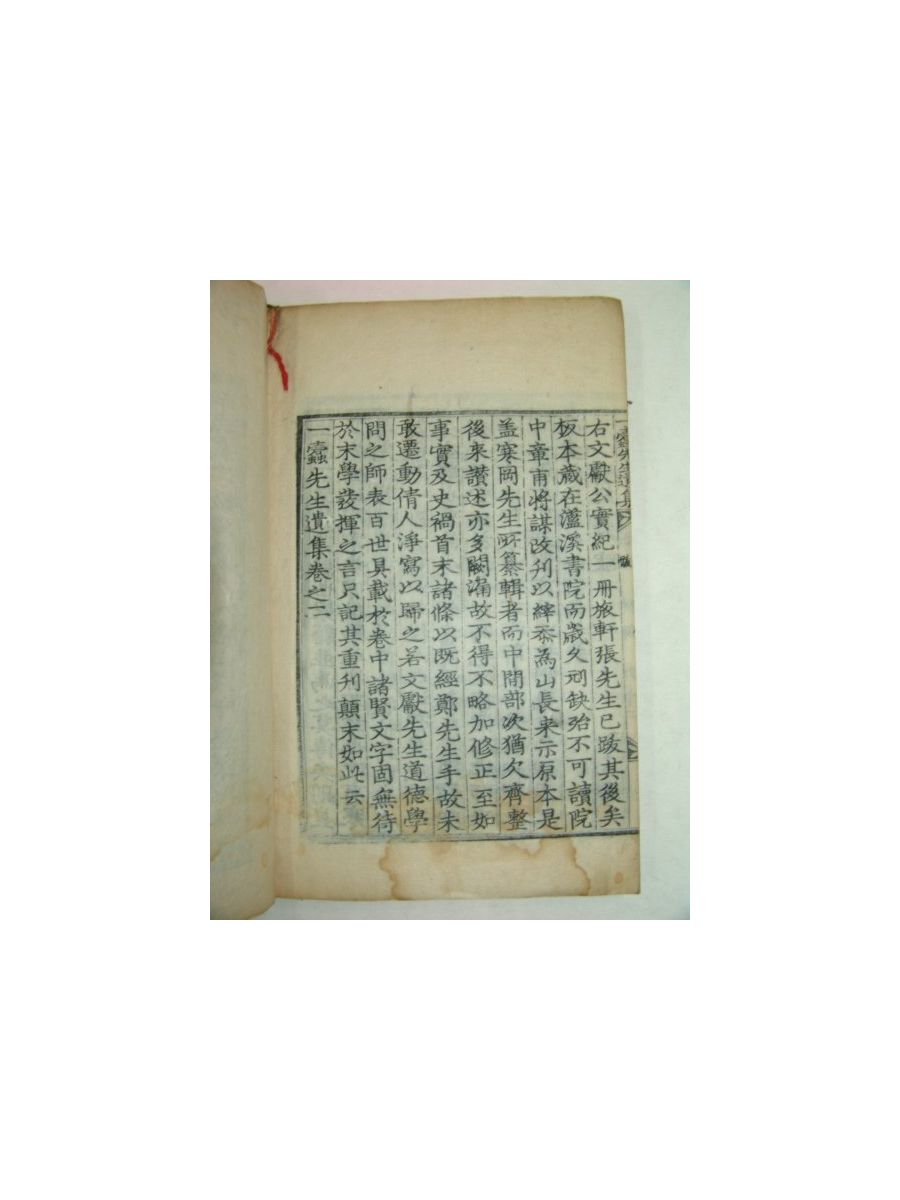 一蠹先生遺集
跋
右文獻公實紀一冊旅軒張先生已跋其後矣
板本藏在灆溪書院而歲久刓缺殆不可讀院
中章甫將謀改刊以縡忝為山長来示原本是
盖寒岡先生所纂輯者而中間部次猶欠齊整
後来讃述亦多闕漏故不得不略加修正至如
事實及史禍首末諸條以既經鄭先生手故未
敢遷動倩人淨寫以歸之若文獻先生道德學
問之師表百世具載於卷中諸賢文字固無待
於末學發揮之言只記其重刊顛末如此云
一蠹先生遺集卷之二